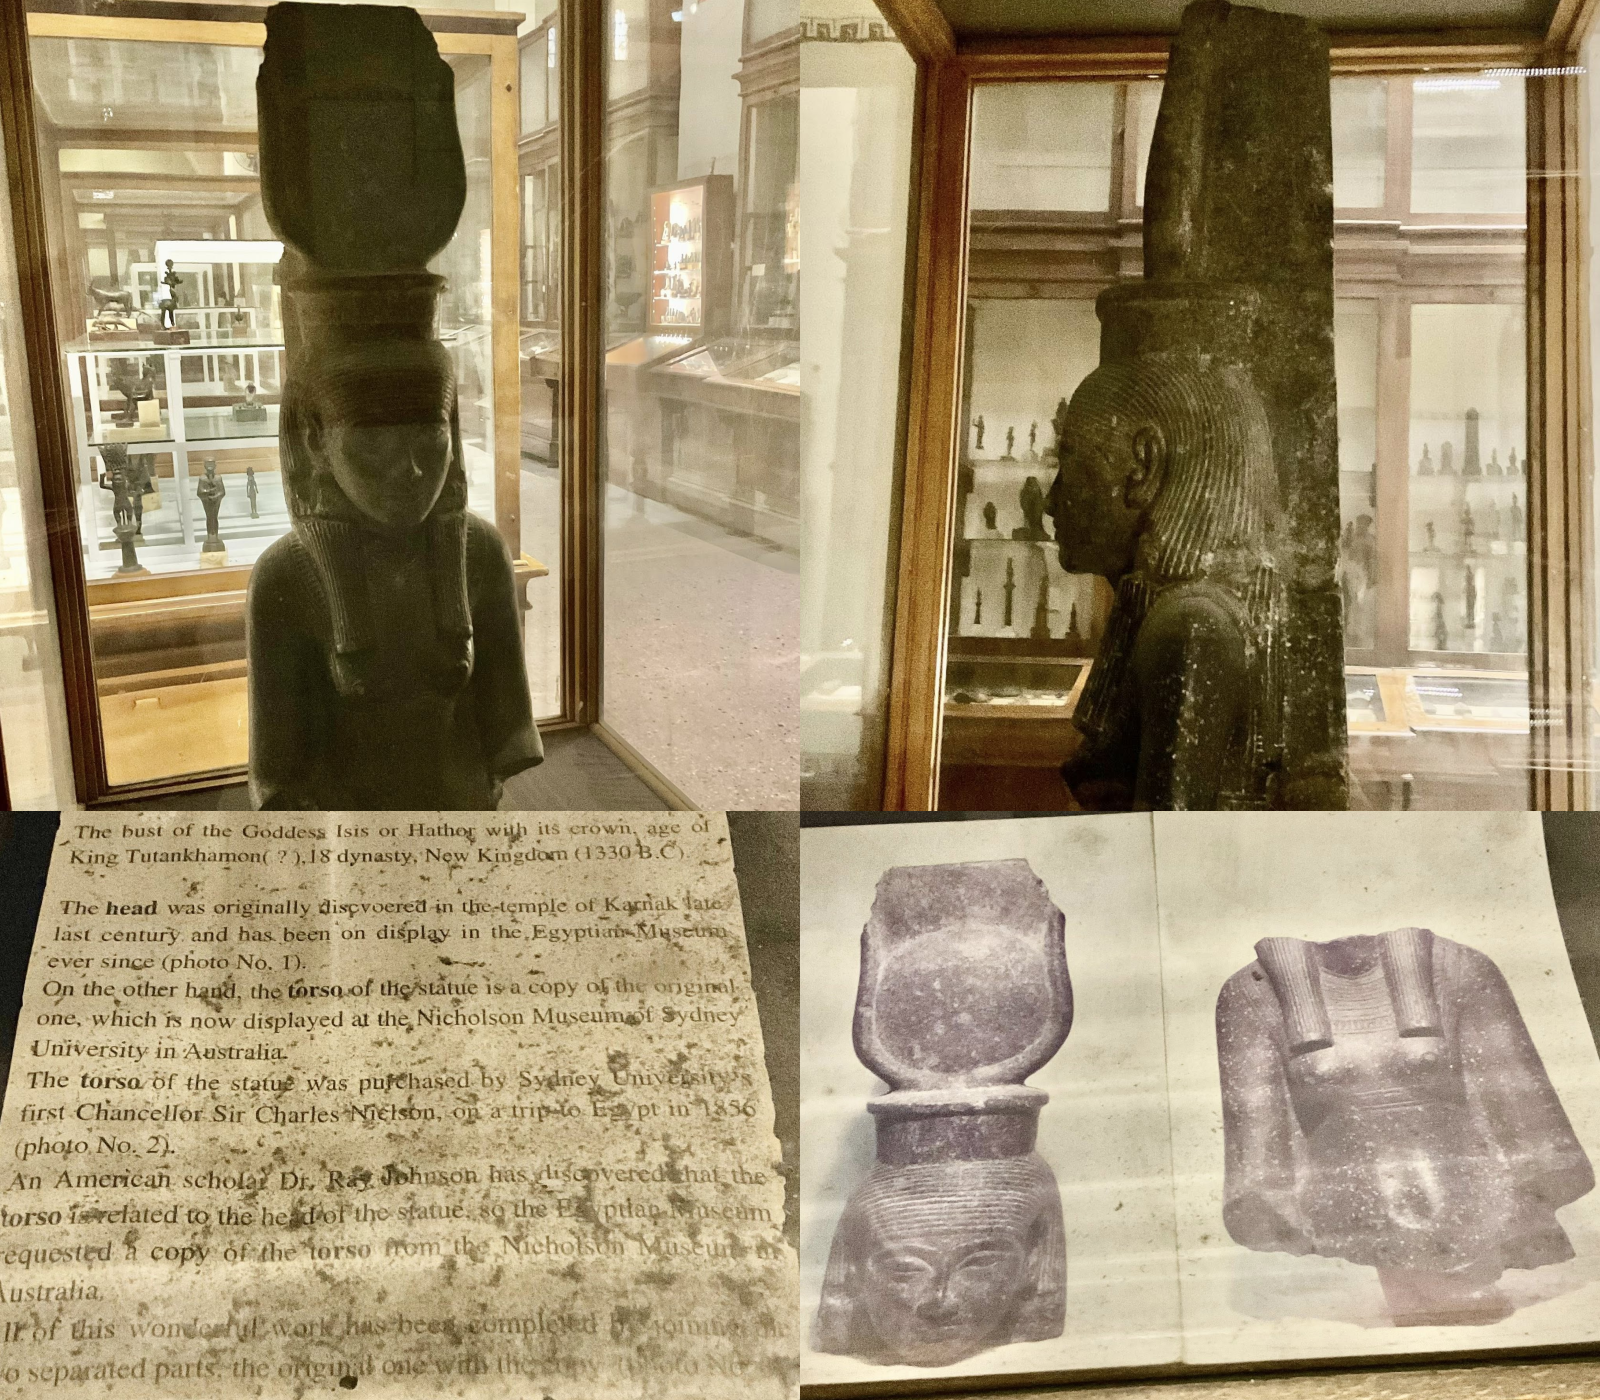 The bust of the Goddess Isis or Hathor with its crown, age of
King Tutankhamon( ? ),18 dynasty, New Kingdom (1330 B.C).
The head was originally discvoered in the temple of Karnak late
last century and has been on display in the Egyptian Museum
ever since (photo No. 1).
On the other hand, the torso of the statue is a copy of the original
one, which is now displayed at the Nicholson Museum of Sydney
University in Australia.
The torso of the statue was purchased by Sydney University's
first Chancellor Sir Charles Niclson, on a trip to Egypt in 1856
(photo No. 2).
An American scholar Dr. Ray Johnson has discovered that the
torso is related to the head of the statue, so the Egyptian Museum
requested a copy of the torso from the Nicholson Museum in
Australia.
ll of this wonderful work has been completed by joining the
o separated parts, the original one with the copy (photo No